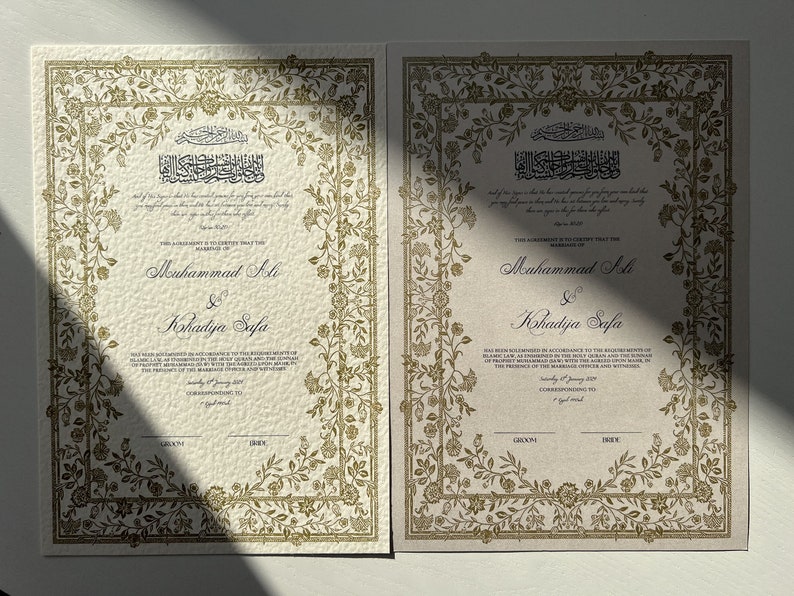 بسم الله الرحمن الرحيم
And of His Signs is that He has created spouses for you from your own kind that
you may find peace in them and He has set between you love and mercy. Surely
there are signs in this for those who reflect.
(Qur'an 30:21)
THIS AGREEMENT IS TO CERTIFY THAT THE
MARRIAGE OF
Muhammad Ali
&
Khadija Safa
HAS BEEN SOLEMNISED IN ACCORDANCE TO THE REQUIREMENTS OF
ISLAMIC LAW, AS ENSHRINED IN THE HOLY QURAN AND THE SUNNAH
OF PROPHET MUHAMMAD (SAW) WITH THE AGREED UPON MAHR, IN
THE PRESENCE OF THE MARRIAGE OFFICER AND WITNESSES.
Saturday, January 2024
CORRESPONDING TO
GROOM BRIDE
بسم الله الرحمن الرحيم
And of His Signs is that He has created spouses for you from your own kind that
you may find peace in them and He has set between you love and mercy. Surely
there are signs in this for those who reflect.
(Qur'an 30:21)
THIS AGREEMENT IS TO CERTIFY THAT THE
MARRIAGE OF
Muhammad Ali
&
Khadija Safa
HAS BEEN SOLEMNISED IN ACCORDANCE TO THE REQUIREMENTS OF
ISLAMIC LAW, AS ENSHRINED IN THE HOLY QURAN AND THE SUNNAH
OF PROPHET MUHAMMAD (SAW) WITH THE AGREED UPON MAHR, IN
THE PRESENCE OF THE MARRIAGE OFFICER AND WITNESSES.
Saturday, January 2024
CORRESPONDING TO
GROOM BRIDE